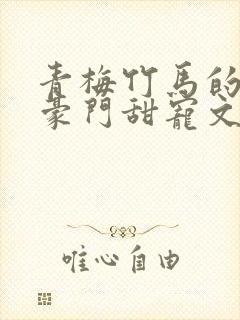 青梅竹馬的
豪門甜寵文
唯心自由